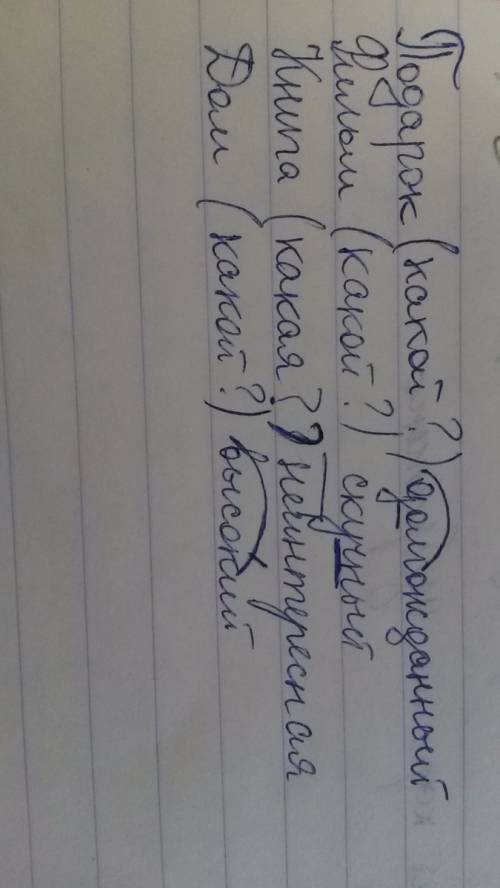 Подарок (какой?) долгожданный
Фильм (какой?) скучный
Книга (какая?) неинтересная
Дом (какой?) высокий